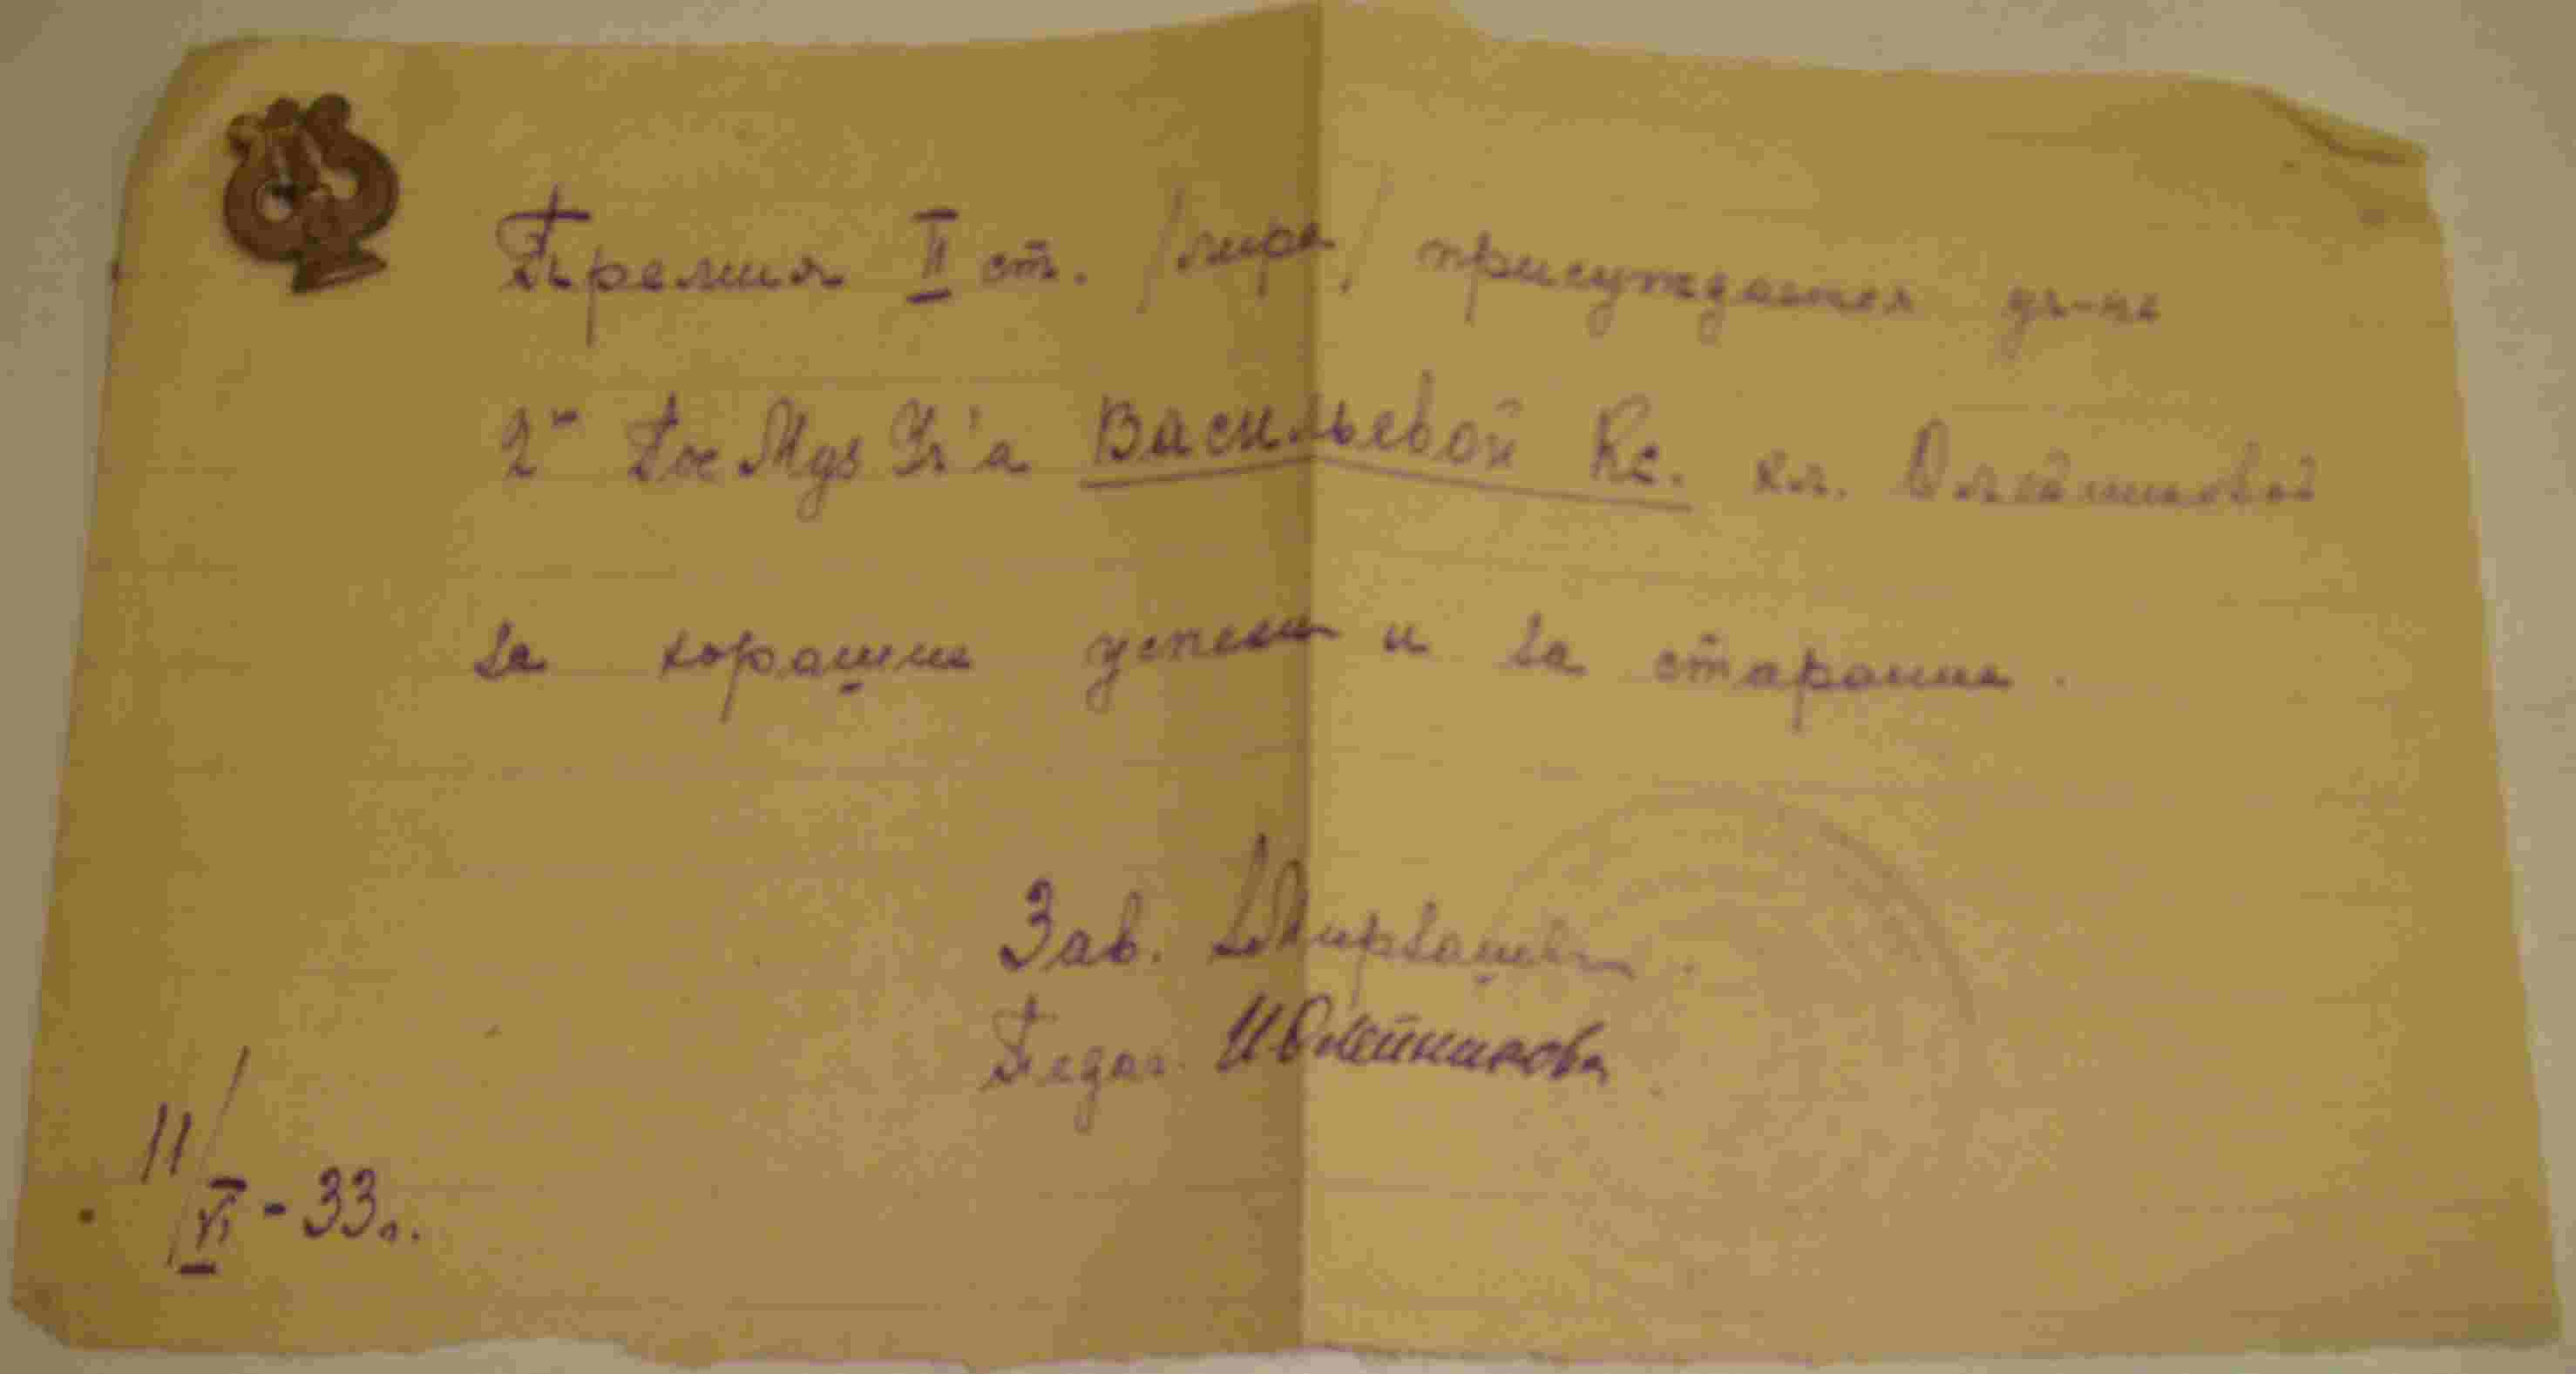 Премия II ст. /лира/ присуждается уч-це
2й Гос Муз Уч'а Васильевой Кс. кл. Олейниковой
за хорошие успехи и за старание.
Зав.
Педаг. И Олейникова
11/VI - 33 г.